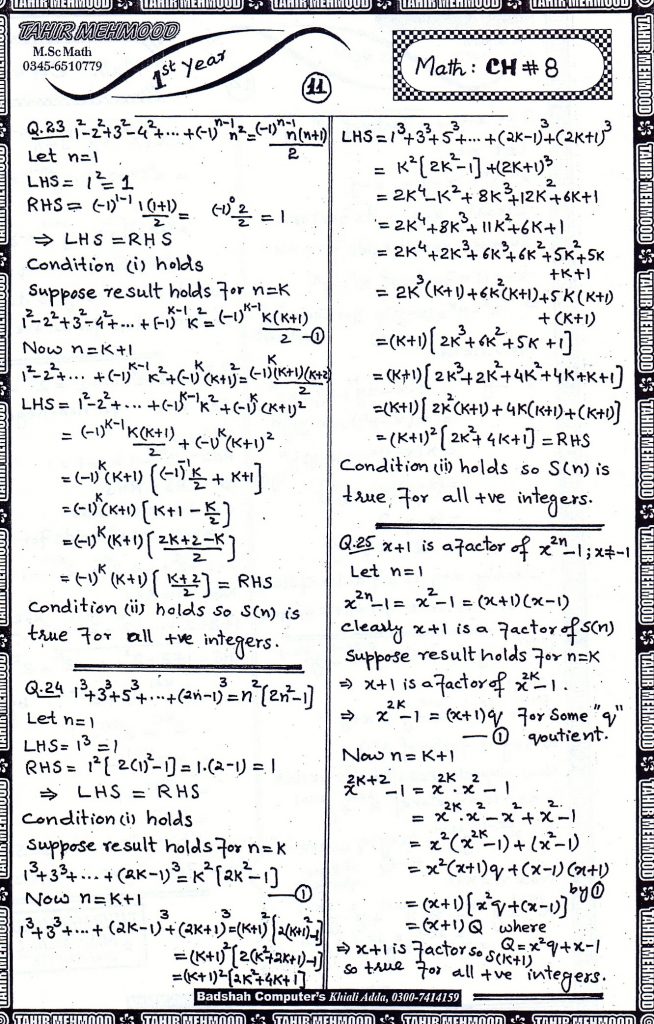 TAHIR MEHMOOD
M.Sc Math
0345-6510779
1st Year
11
Math: CH # 8
Q.23 1²-2²+3²-4²+...+(-1)ⁿ⁻¹n²=(-1)ⁿ⁻¹n(n+1)/2
Let n=1
LHS= 1²=1
RHS= (-1)¹⁻¹ 1(1+1)/2 = (-1)⁰2/2 = 1
⇒ LHS = RHS
Condition (i) holds
Suppose result holds for n=K
1²-2²+3²-4²+...+(-1)ᴷ⁻¹K²=(-1)ᴷ⁻¹K(K+1)/2 —①
Now n=K+1
1²-2²+...+(-1)ᴷ⁻¹K²+(-1)ᴷ(K+1)²=(-1)ᴷ(K+1)(K+2)/2
LHS= 1²-2²+...+(-1)ᴷ⁻¹K²+(-1)ᴷ(K+1)²
= (-1)ᴷ⁻¹K(K+1)/2 + (-1)ᴷ(K+1)²
=(-1)ᴷ(K+1) [(-1)⁻¹K/2 + K+1]
=(-1)ᴷ(K+1) [K+1 - K/2]
=(-1)ᴷ(K+1) [2K+2-K/2]
=(-1)ᴷ(K+1) [K+2/2] = RHS
Condition (ii) holds so S(n) is
true for all +ve integers.
Q.24 1³+3³+5³+...+(2n-1)³=n²[2n²-1]
Let n=1
LHS= 1³=1
RHS= 1²[2(1)²-1]=1.(2-1)=1
⇒ LHS = RHS
Condition (i) holds
Suppose result holds for n=K
1³+3³+...+(2K-1)³=K²[2K²-1]
—①
Now n=K+1
1³+3³+...+(2K-1)³+(2K+1)³=(K+1)²[2(K+1)²-1]
=(K+1)²[2(K²+2K+1)-1]
=(K+1)²[2K²+4K+1]
LHS=1³+3³+5³+...+(2K-1)³+(2K+1)³
= K²[2K²-1]+(2K+1)³
= 2K⁴-K²+8K³+12K²+6K+1
= 2K⁴+8K³+11K²+6K+1
= 2K⁴+2K³+6K³+6K²+5K²+5K
+K+1
= 2K³(K+1)+6K²(K+1)+5K(K+1)
+(K+1)
=(K+1)[2K³+6K²+5K+1]
=(K+1)[2K³+2K²+4K²+4K+K+1]
=(K+1)[2K²(K+1)+4K(K+1)+(K+1)]
=(K+1)²[2K²+4K+1]=RHS
Condition (ii) holds so S(n) is
true for all +ve integers.
Q.25 x+1 is a factor of x²ⁿ-1; x≠-1
Let n=1
x²ⁿ-1= x²-1=(x+1)(x-1)
Clearly x+1 is a factor of S(n)
Suppose result holds for n=K
⇒ x+1 is a factor of x²ᴷ-1.
⇒ x²ᴷ-1=(x+1)q for some "q"
—① qoutient.
Now n=K+1
x²ᴷ⁺²-1=x²ᴷ.x²-1
= x²ᴷ.x²-x²+x²-1
= x²(x²ᴷ-1)+(x²-1)
= x²(x+1)q+(x-1)(x+1)
by ①
=(x+1)[x²q+(x-1)]
=(x+1)Q where
Q=x²q+x-1
⇒x+1 is factor so S(K+1)
so true for all +ve integers.
Badshah Computer's Khiali Adda, 0300-7414159